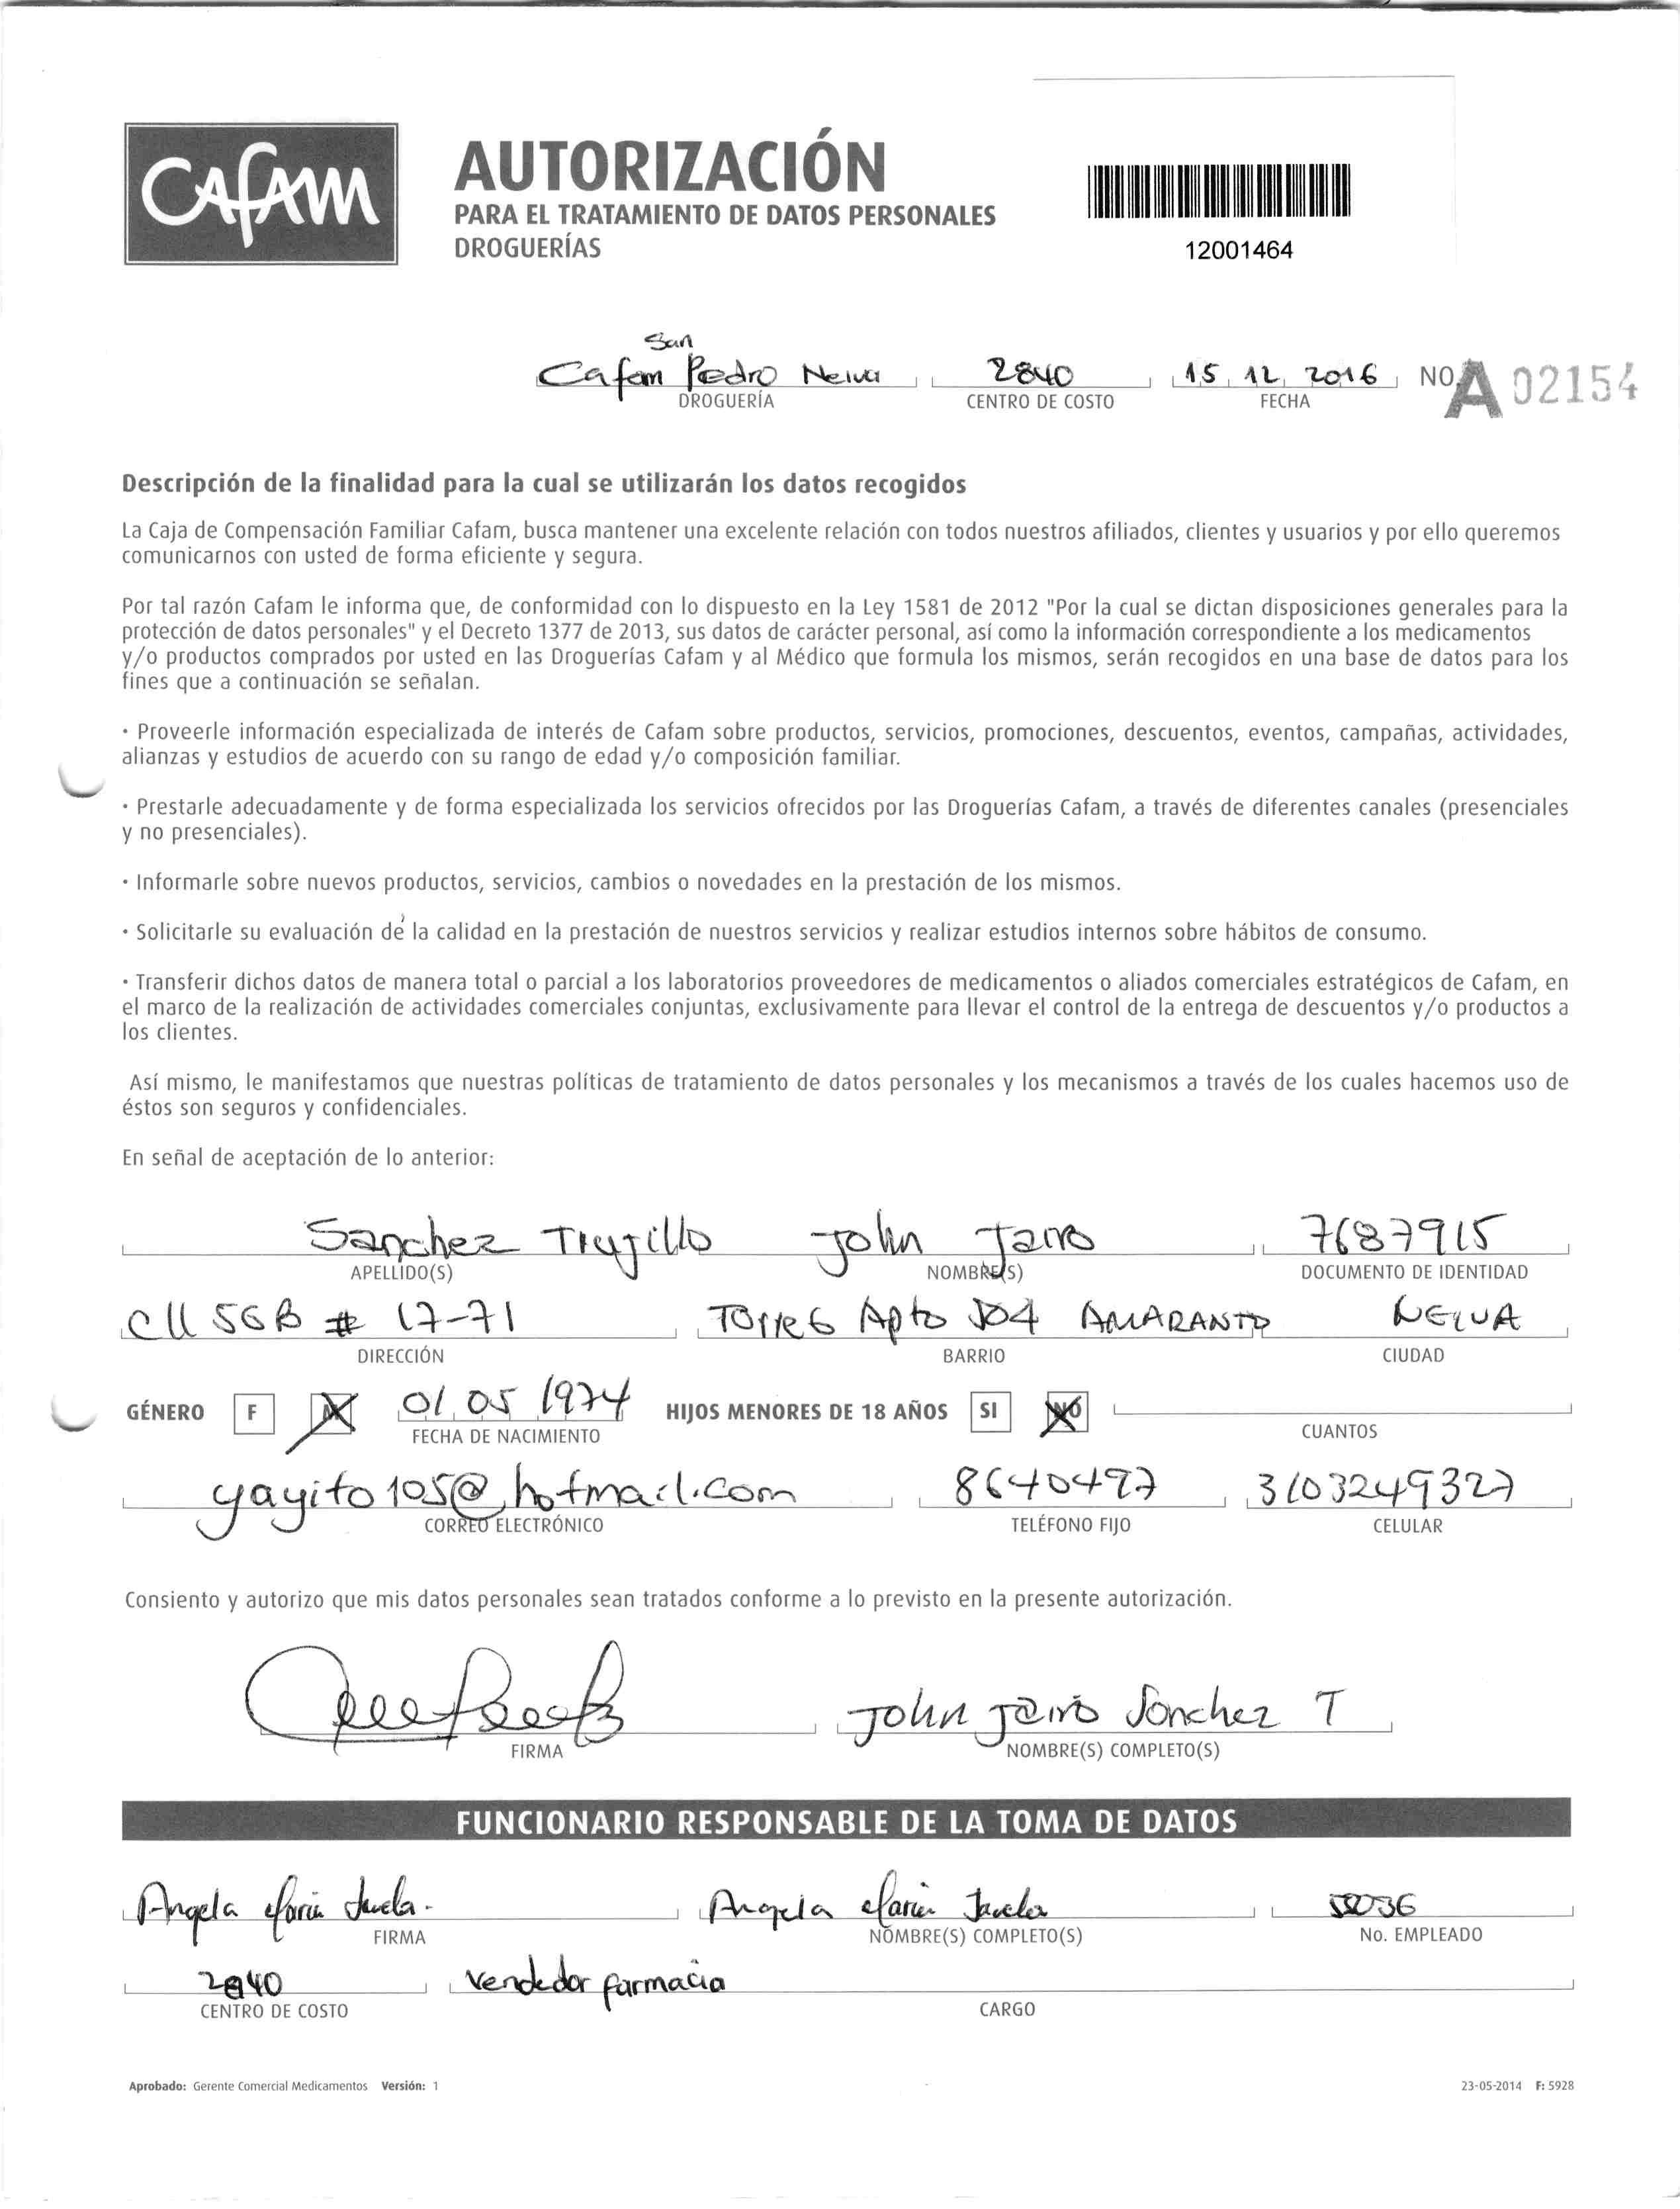 Cafam
AUTORIZACIÓN
PARA EL TRATAMIENTO DE DATOS PERSONALES
DROGUERÍAS
12001464
San
Cafam Pedro Neiva 2840 15 12 2016 NO. A 02154
DROGUERÍA CENTRO DE COSTO FECHA
Descripción de la finalidad para la cual se utilizarán los datos recogidos
La Caja de Compensación Familiar Cafam, busca mantener una excelente relación con todos nuestros afiliados, clientes y usuarios y por ello queremos
comunicarnos con usted de forma eficiente y segura.
Por tal razón Cafam le informa que, de conformidad con lo dispuesto en la Ley 1581 de 2012 "Por la cual se dictan disposiciones generales para la
protección de datos personales" y el Decreto 1377 de 2013, sus datos de carácter personal, así como la información correspondiente a los medicamentos
y/o productos comprados por usted en las Droguerías Cafam y al Médico que formula los mismos, serán recogidos en una base de datos para los
fines que a continuación se señalan.
· Proveerle información especializada de interés de Cafam sobre productos, servicios, promociones, descuentos, eventos, campañas, actividades,
alianzas y estudios de acuerdo con su rango de edad y/o composición familiar.
· Prestarle adecuadamente y de forma especializada los servicios ofrecidos por las Droguerías Cafam, a través de diferentes canales (presenciales
y no presenciales).
· Informarle sobre nuevos productos, servicios, cambios o novedades en la prestación de los mismos.
· Solicitarle su evaluación de la calidad en la prestación de nuestros servicios y realizar estudios internos sobre hábitos de consumo.
· Transferir dichos datos de manera total o parcial a los laboratorios proveedores de medicamentos o aliados comerciales estratégicos de Cafam, en
el marco de la realización de actividades comerciales conjuntas, exclusivamente para llevar el control de la entrega de descuentos y/o productos a
los clientes.
Así mismo, le manifestamos que nuestras políticas de tratamiento de datos personales y los mecanismos a través de los cuales hacemos uso de
éstos son seguros y confidenciales.
En señal de aceptación de lo anterior:
Sanchez Trujillo John Jairo 7687915
APELLIDO(S) NOMBRE(S) DOCUMENTO DE IDENTIDAD
Cll 56B # 17-71 Torre 6 Apto 504 AMARANTO NEIVA
DIRECCIÓN BARRIO CIUDAD
GÉNERO F M 01 05 1974 HIJOS MENORES DE 18 AÑOS SI NO
FECHA DE NACIMIENTO CUANTOS
yayito105@hotmail.com 8640497 3103249327
CORREO ELECTRÓNICO TELÉFONO FIJO CELULAR
Consiento y autorizo que mis datos personales sean tratados conforme a lo previsto en la presente autorización.
John Jairo Sanchez T
FIRMA NOMBRE(S) COMPLETO(S)
FUNCIONARIO RESPONSABLE DE LA TOMA DE DATOS
Angela Maria Javela. Angela Maria Javela
FIRMA NOMBRE(S) COMPLETO(S) No. EMPLEADO
2840 Vendedor farmacia
CENTRO DE COSTO CARGO
Aprobado: Gerente Comercial Medicamentos Versión: 1 23-05-2014 F: 5928